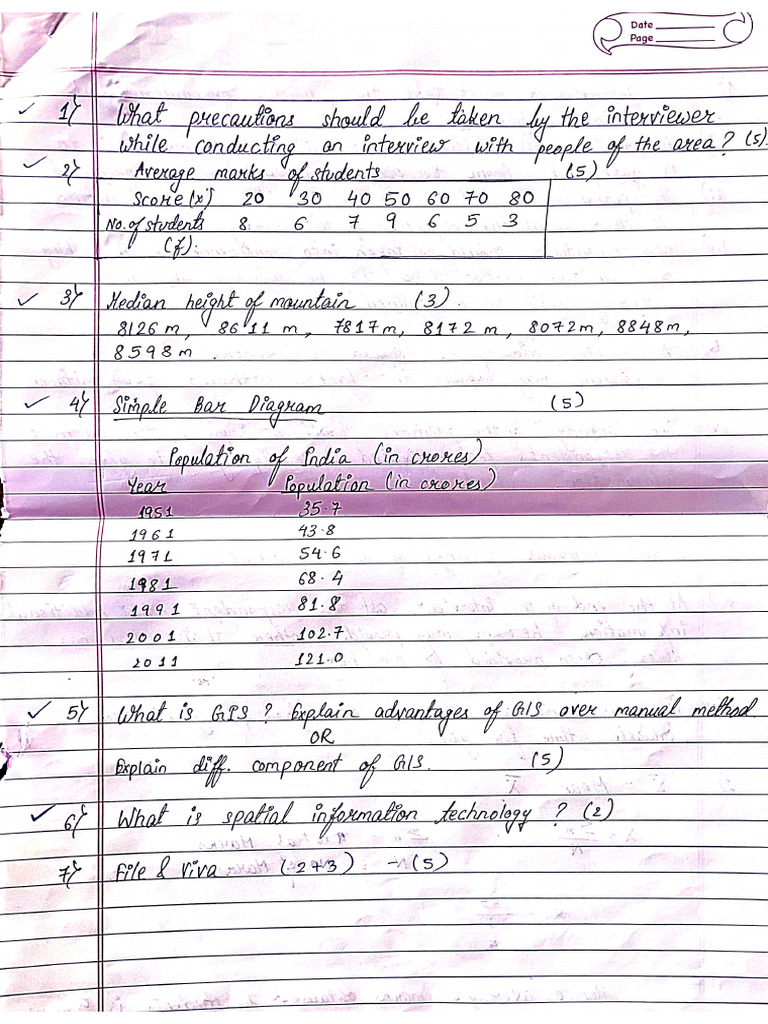 Date
Page
1} What precautions should be taken by the interviewer
while conducting an interview with people of the area? (5).
2} Average marks of students (5)
Score (x) 20 30 40 50 60 70 80
No. of students 8 6 7 9 6 5 3
(f):
3} Median height of mountain (3).
8126 m, 8611 m, 7817m, 8172 m, 8072m, 8848m,
8598m.
4} Simple Bar Diagram (5)
Population of India (in crores)
Year Population (in crores)
1951 35.7
1961 43.8
1971 54.6
1981 68.4
1991 81.8
2001 102.7
2011 121.0
5} What is GIS? Explain advantages of GIS over manual method
OR
Explain diff. component of GIS. (5)
6} What is spatial information technology? (2)
7} File & Viva (2+3) - (5)